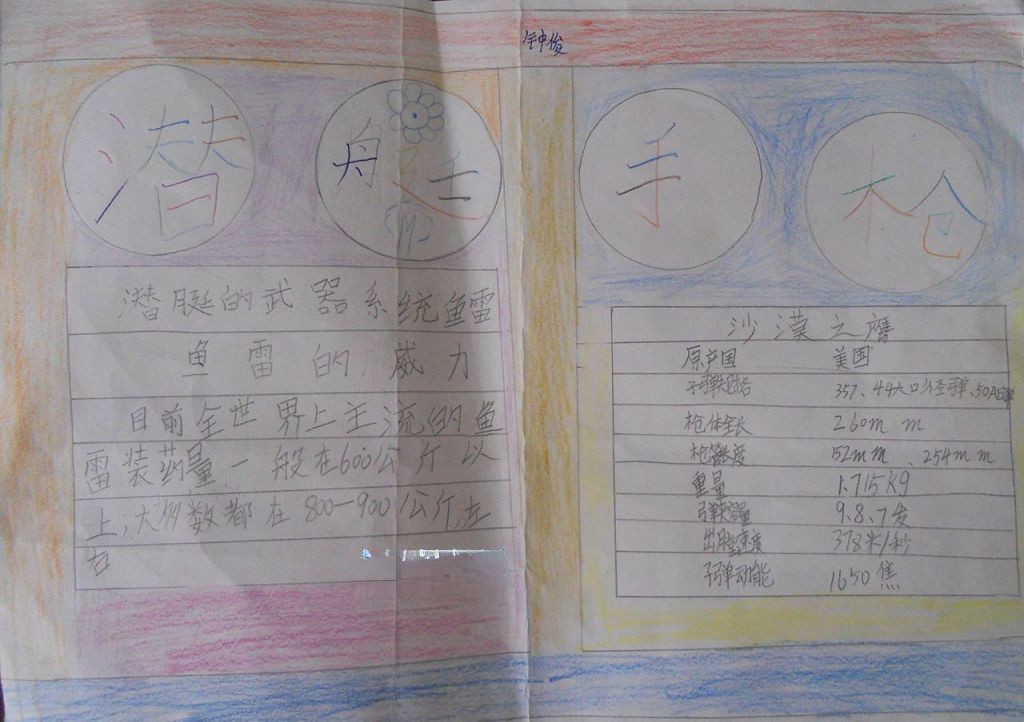 钟俊
潜艇
潜艇的武器系统鱼雷
鱼雷的威力
目前全世界上主流的鱼
雷装药量一般在600公斤以
上,大多数都在800-900公斤左
右
手枪
沙漠之鹰
原产国 美国
357、44大口径弹、50AE弹
枪体全长 260mm
枪管长度 152mm、254mm
重量 1.715kg
弹夹容量 9.8.7发
出膛速度 378米/秒
子弹动能 1650焦